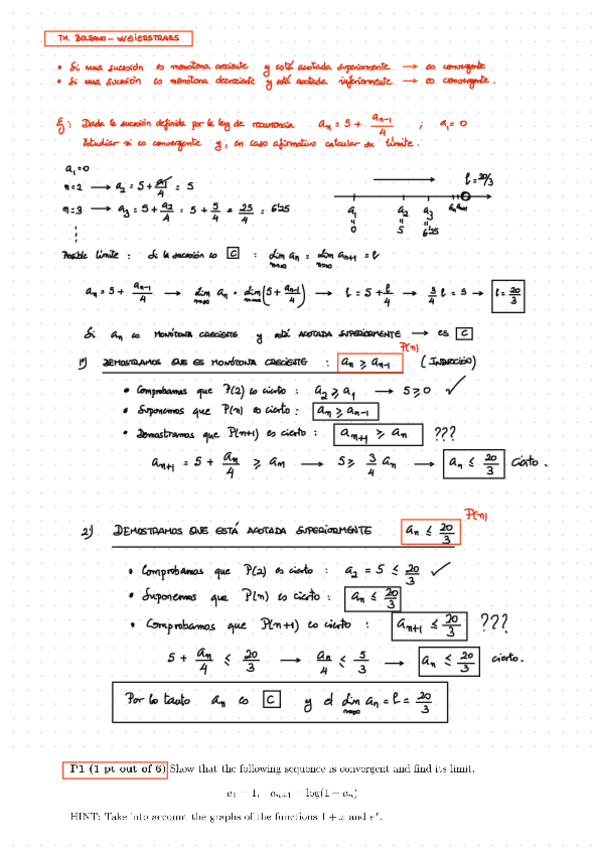 TH. BOLZANO - WEIERSTRASS
• Si una sucesión es monótona creciente y está acotada superiormente → es convergente
• Si una sucesión es monótona decreciente y está acotada inferiormente → es convergente.
Ej: Dada la sucesión definida por la ley de recurrencia aₙ = 5 + aₙ₋₁/4 ; a₁ = 0
Estudiar si es convergente y, en caso afirmativo calcular su límite.
a₁ = 0
n=2 → a₂ = 5 + a₁/4 = 5
n=3 → a₃ = 5 + a₂/4 = 5 + 5/4 = 25/4 = 6'25
l = 20/3
a₁ a₂ a₃ aₙ aₙ₊₁
0 5 6'25
Posible límite : Si la sucesión es C : lim aₙ = lim aₙ₊₁ = l
aₙ = 5 + aₙ₋₁/4 → lim aₙ = lim (5 + aₙ₋₁/4) → l = 5 + l/4 → 3/4 l = 5 → l = 20/3
Si aₙ es MONÓTONA CRECIENTE y está ACOTADA SUPERIORMENTE → es C
1º) DEMOSTRAMOS QUE ES MONÓTONA CRECIENTE : aₙ ≥ aₙ₋₁ P(n) (INDUCCIÓN)
• Comprobamos que P(2) es cierto : a₂ ≥ a₁ → 5 ≥ 0 ✓
• Suponemos que P(n) es cierto : aₙ ≥ aₙ₋₁
• Demostramos que P(n+1) es cierto : aₙ₊₁ ≥ aₙ ???
aₙ₊₁ = 5 + aₙ/4 ≥ aₙ → 5 ≥ 3/4 aₙ → aₙ ≤ 20/3 cierto.
2) DEMOSTRAMOS QUE ESTÁ ACOTADA SUPERIORMENTE aₙ ≤ 20/3 P(n)
• Comprobamos que P(2) es cierto : a₂ = 5 ≤ 20/3 ✓
• Suponemos que P(n) es cierto : aₙ ≤ 20/3
• Comprobamos que P(n+1) es cierto : aₙ₊₁ ≤ 20/3 ???
5 + aₙ/4 ≤ 20/3 → aₙ/4 ≤ 5/3 → aₙ ≤ 20/3 cierto.
Por lo tanto aₙ es C y el lim aₙ = l = 20/3
P1 (1 pt out of 6) Show that the following sequence is convergent and find its limit.
HINT: Take into account the graphs of the functions 1 + x and eˣ.